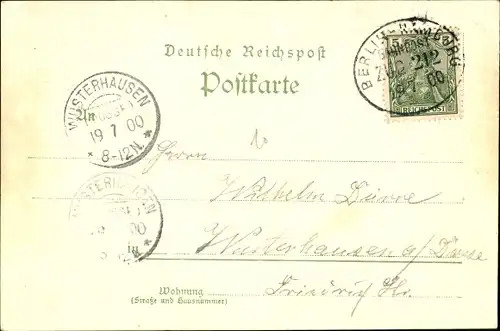 Deutsche Reichspost
Postkarte
BERLIN HAMBURG
BAHNPOST
ZUG 212
19 7 00
5 5
REICHSPOST
WUSTERHAUSEN
(DOSSE)
19 7 00
* 8-12N. *
An
Herrn
Wilhelm Dürre
WUSTERHAUSEN
00
in
Wusterhausen a/ Dosse
Wohnung
(Straße und Hausnummer)
Friedrich Str.